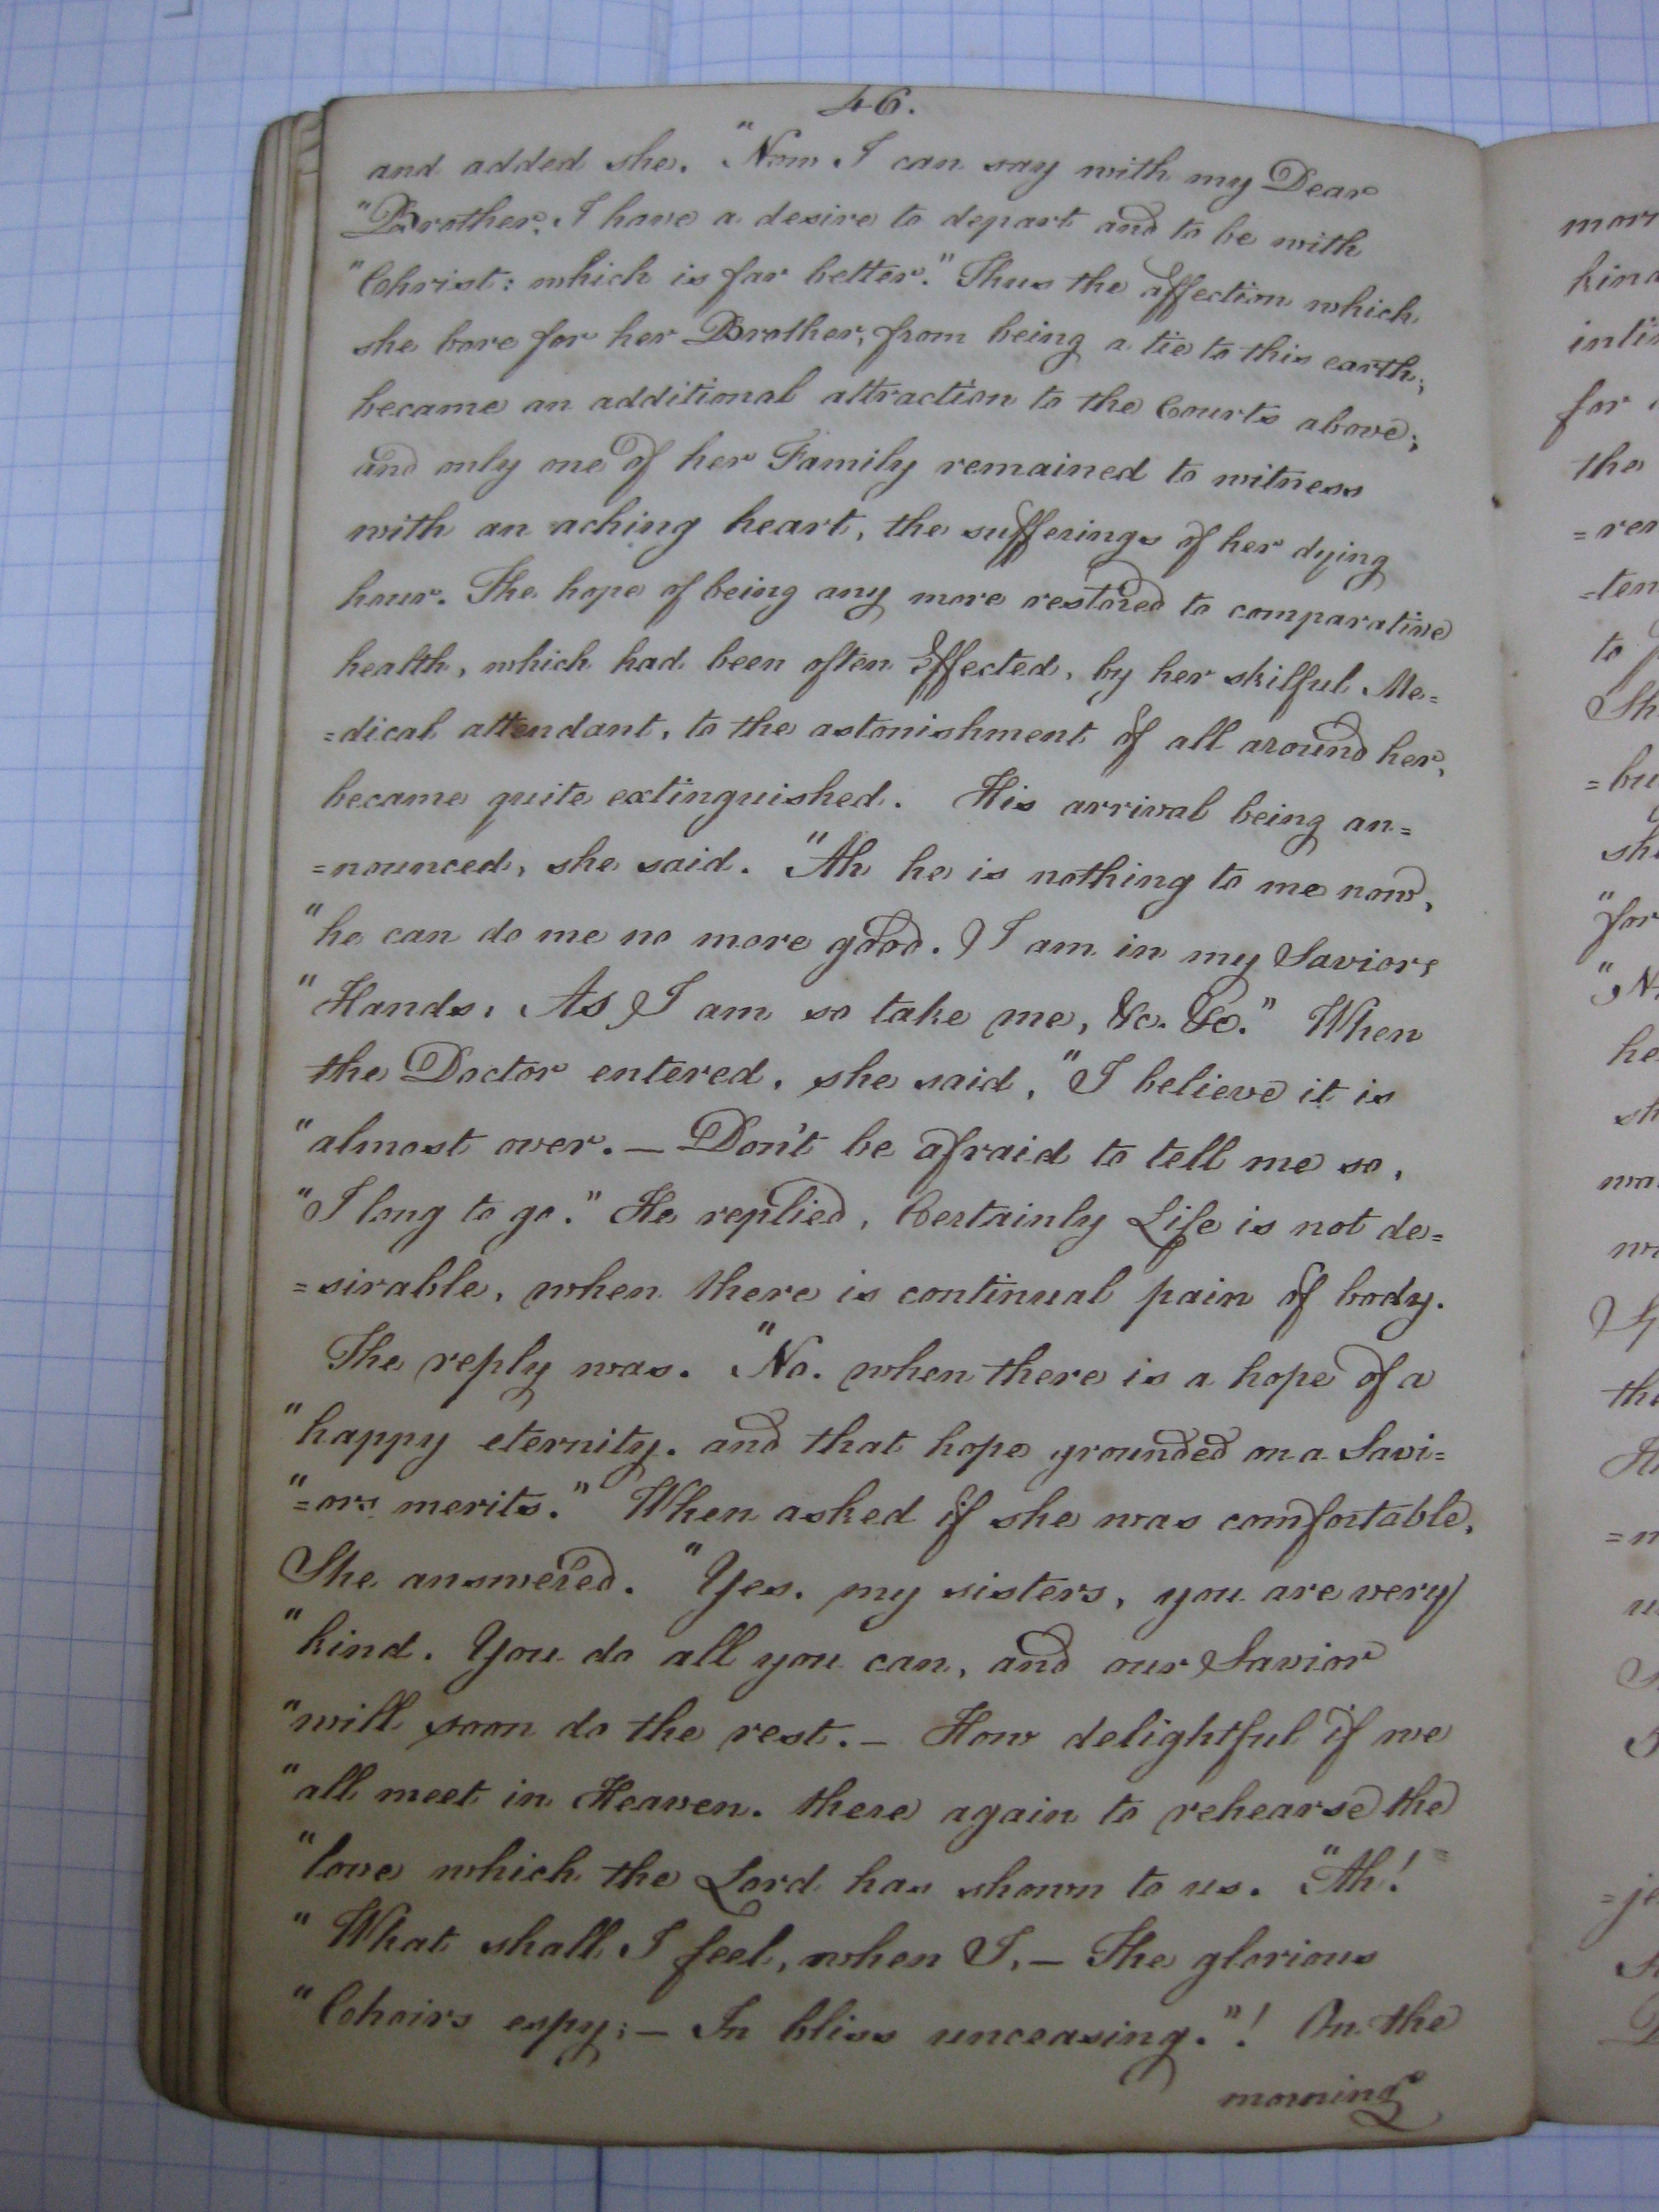 46.
and added she. "Now I can say with my Dear
"Brother. I have a desire to depart and to be with
"Christ: which is far better." Thus the affection which
she bore for her Brother, from being a tie to this earth,
became an additional attraction to the Courts above;
and only one of her Family remained to witness
with an aching heart, the sufferings of her dying
hour. The hope of being any more restored to comparative
health, which had been often effected, by her skilful Me=
=dical attendant, to the astonishment of all around her,
became quite extinguished. His arrival being an=
=nounced, she said. "Ah he is nothing to me now,
"he can do me no more good. I am in my Saviors
"Hands, As I am so take me, &c. &c." When
the Doctor entered, she said, "I believe it is
"almost over. — Don't be afraid to tell me so,
"I long to go." He replied, Certainly Life is not de=
=sirable, when there is continual pain of body.
The reply was. "No. when there is a hope of a
"happy eternity. and that hope grounded on a Savi=
"=ors merits." When asked if she was comfortable,
She answered. "Yes. my sisters, you are very
"kind. You do all you can, and our Savior
"will soon do the rest. — How delightful if we
"all meet in Heaven. there again to rehearse the
"love which the Lord has shown to us. "Ah!
"What shall I feel, when I, — The glorious
"Choirs espy; — In bliss unceasing."! On the
morning
mor
kin
for
the
=rer
=ten
to
Sh
=bu
sh
"for
he
st